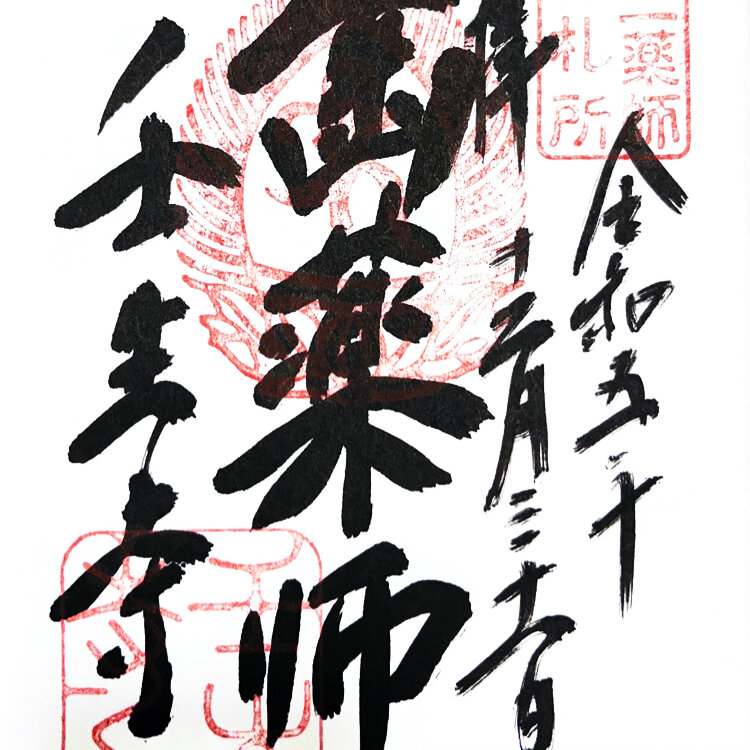 一薬師
札所
令和五年
拝
十二月三十一日
歯薬師
壬生寺